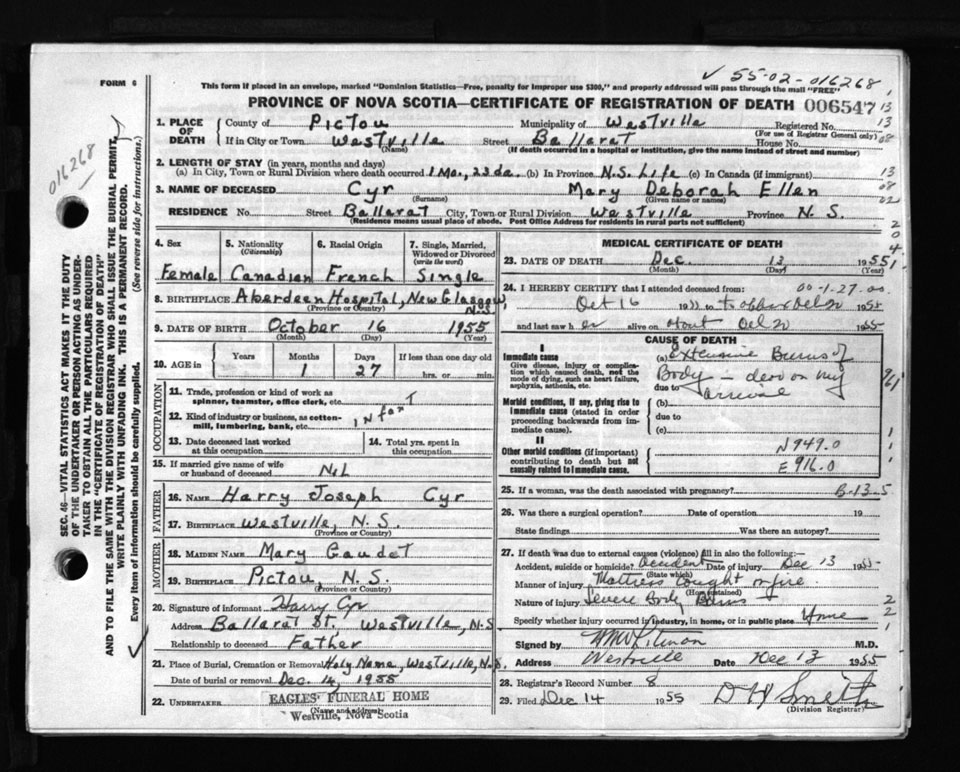 ✓ 55-02-016268
FORM 6
This form if placed in an envelope, marked "Dominion Statistics—Free, penalty for improper use $300," and properly addressed will pass through the mail "FREE"
PROVINCE OF NOVA SCOTIA—CERTIFICATE OF REGISTRATION OF DEATH 006547
016268
SEC. 46—VITAL STATISTICS ACT MAKES IT THE DUTY
OF THE UNDERTAKER OR PERSON ACTING AS UNDER-
TAKER TO OBTAIN ALL THE PARTICULARS REQUIRED
IN THE "CERTIFICATE OF REGISTRATION OF DEATH"
AND TO FILE THE SAME WITH THE DIVISION REGISTRAR WHO SHALL ISSUE THE BURIAL PERMIT.
WRITE PLAINLY WITH UNFADING INK. THIS IS A PERMANENT RECORD.
Every item of information should be carefully supplied. (See reverse side for instructions.)
1. PLACE OF DEATH County of Pictou Municipality of Westville Registered No.
(For use of Registrar General only)
If in City or Town Westville Street Ballarat House No.
(Name) (If death occurred in a hospital or institution, give the name instead of street and number)
2. LENGTH OF STAY (in years, months and days)
(a) In City, Town or Rural Division where death occurred 1 Mo., 23 da. (b) In Province N.S. Life (c) In Canada (if immigrant)
3. NAME OF DECEASED Cyr Mary Deborah Ellen
(Surname) (Given name or names)
RESIDENCE No. Street Ballarat City, Town or Rural Division Westville Province N. S.
(Residence means usual place of abode. Post Office Address for residents in rural parts not sufficient)
4. Sex 5. Nationality (Citizenship) 6. Racial Origin 7. Single, Married, Widowed or Divorced (write the word)
Female Canadian French Single
8. BIRTHPLACE Aberdeen Hospital, New Glasgow, N.S.
(Province or Country)
9. DATE OF BIRTH October 16 1955
(Month) (Day) (Year)
10. AGE in Years Months Days If less than one day old
1 27 hrs. or min.
OCCUPATION
11. Trade, profession or kind of work as
spinner, teamster, office clerk, etc.
12. Kind of industry or business, as cotton-
mill, lumbering, bank, etc. Infant
13. Date deceased last worked at this occupation
14. Total yrs. spent in this occupation
15. If married give name of wife
or husband of deceased Nil
FATHER
16. NAME Harry Joseph Cyr
17. BIRTHPLACE Westville, N.S.
(Province or Country)
MOTHER
18. MAIDEN NAME Mary Gaudet
19. BIRTHPLACE Pictou, N.S.
(Province or Country)
20. Signature of informant Harry Cyr
Address Ballarat St. Westville, N.S
Relationship to deceased Father
21. Place of Burial, Cremation or Removal Holy Name, Westville, N.S.
Date of burial or removal Dec. 14, 1955
22. UNDERTAKER EAGLES' FUNERAL HOME
(Name and address)
Westville, Nova Scotia
MEDICAL CERTIFICATE OF DEATH
23. DATE OF DEATH Dec. 13 1955
(Month) (Day) (Year)
24. I HEREBY CERTIFY that I attended deceased from: 00-1-27-00
Oct 16 1955 to 1955
and last saw her alive on 1955
CAUSE OF DEATH
I
Immediate cause
Give disease, injury or complica-
tion which caused death, not the
mode of dying, such as heart failure,
asphyxia, asthenia, etc.
(a) Extensive Burns of
Body – dead on my
due to arrival
961
Morbid conditions, if any, giving rise to
immediate cause (stated in order
proceeding backwards from im-
mediate cause).
(b)
due to
(c)
II
Other morbid conditions (if important)
contributing to death but not
causally related to immediate cause.
N949.0
E916.0
25. If a woman, was the death associated with pregnancy? B-13-5
26. Was there a surgical operation? Date of operation 19
State findings Was there an autopsy?
27. If death was due to external causes (violence) fill in also the following:—
Accident, suicide or homicide? Accident Date of injury Dec 13 1955
(State which)
Manner of injury Mattress caught on fire
(How sustained)
Nature of injury Severe Body Burns
Specify whether injury occurred in industry, in home, or in public place Home
Signed by M.D.
Address Westville Date Dec 13 1955
28. Registrar's Record Number 8
29. Filed Dec 14 1955 D H Smith
(Division Registrar)